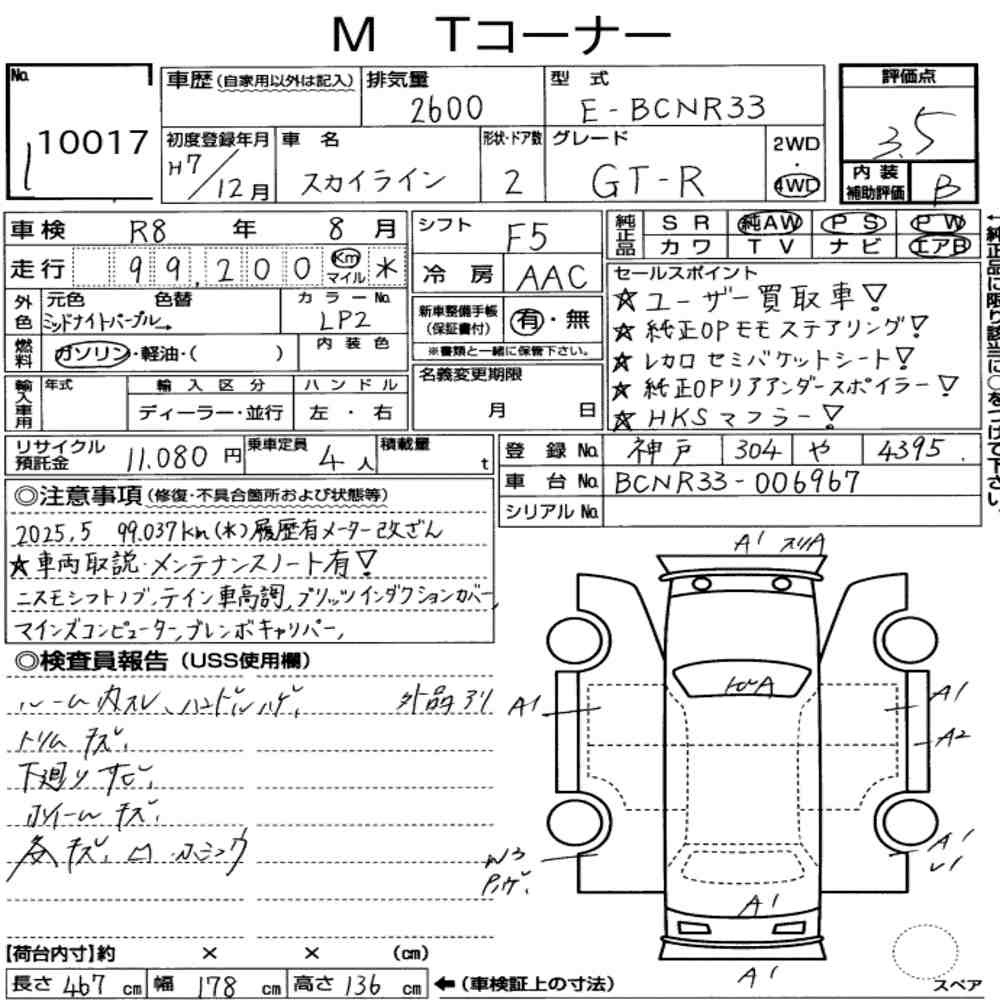 M Tコーナー
No. 10017
車歴 (自家用以外は記入)
排気量 2600
型式 E-BCNR33
評価点 3.5
初度登録年月 H7/12月
車名 スカイライン
形状・ドア数 2
グレード GT-R
2WD・4WD
内装補助評価 B
車検 R8年 8月
シフト F5
純正品 SR 純AW PS PW
カワ TV ナビ エアB
走行 99,200 Km マイル 米
冷房 AAC
←純正品に限り該当に○をつけて下さい。
外色 元色 色替 ミッドナイトパープル→
カラーNo. LP2
新車整備手帳(保証書付) 有・無
※書類と一緒に保管下さい。
燃料 ガソリン・軽油・( )
内装色
輸入車用 年式 輸入区分 ハンドル
ディーラー・並行 左・右
名義変更期限
月 日
セールスポイント
☆ユーザー買取車!
☆純正OPモモステアリング!
☆レカロセミバケットシート!
☆純正OPリアアンダースポイラー!
☆HKSマフラー!
リサイクル預託金 11.080円
乗車定員 4人
積載量 t
登録No. 神戸 304 や 4395
車台No. BCNR33-006967
シリアルNo.
◎注意事項(修復・不具合箇所および状態等)
2025.5 99.037km(米)履歴有メーター改ざん
☆車両取説・メンテナンスノート有!
ニスモシフトノブ,テイン車高調,ブリッツインダクションカバー,
マインズコンピューター,ブレンボキャリパー,
◎検査員報告(USS使用欄)
ルーム内スレ、ハンドルハゲ、
トリムキズ、
下廻りサビ、
ホイールキズ、
各キズ、凹
A1
A1
A1
A2
A1
W3
A1
A1
【荷台内寸】約 × × (cm)
長さ 467 cm 幅 178 cm 高さ 136 cm ←(車検証上の寸法)
スペア